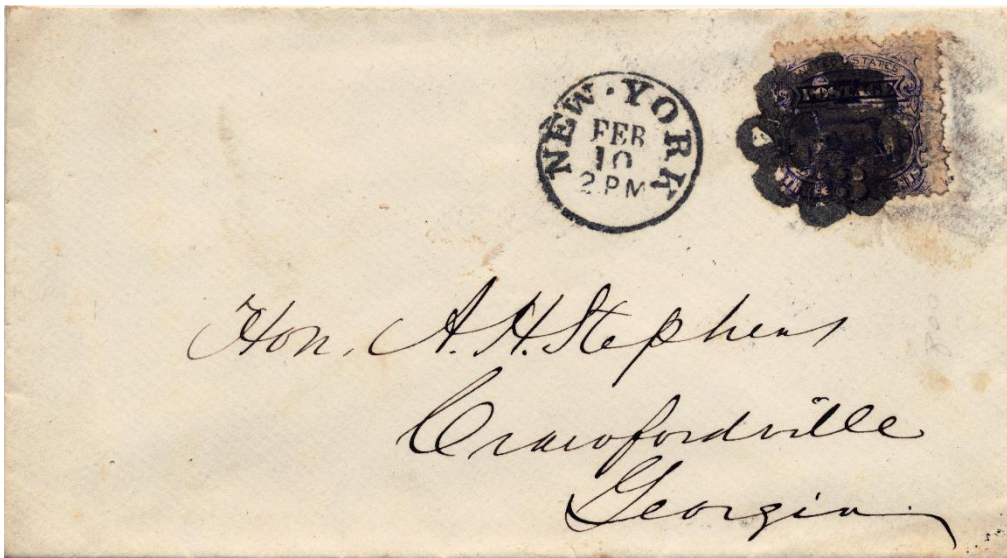 NEW·YORK
FEB
10
2.PM
UNITED STATES
POSTAGE
Hon. A.H. Stephens
Crawfordville
Georgia